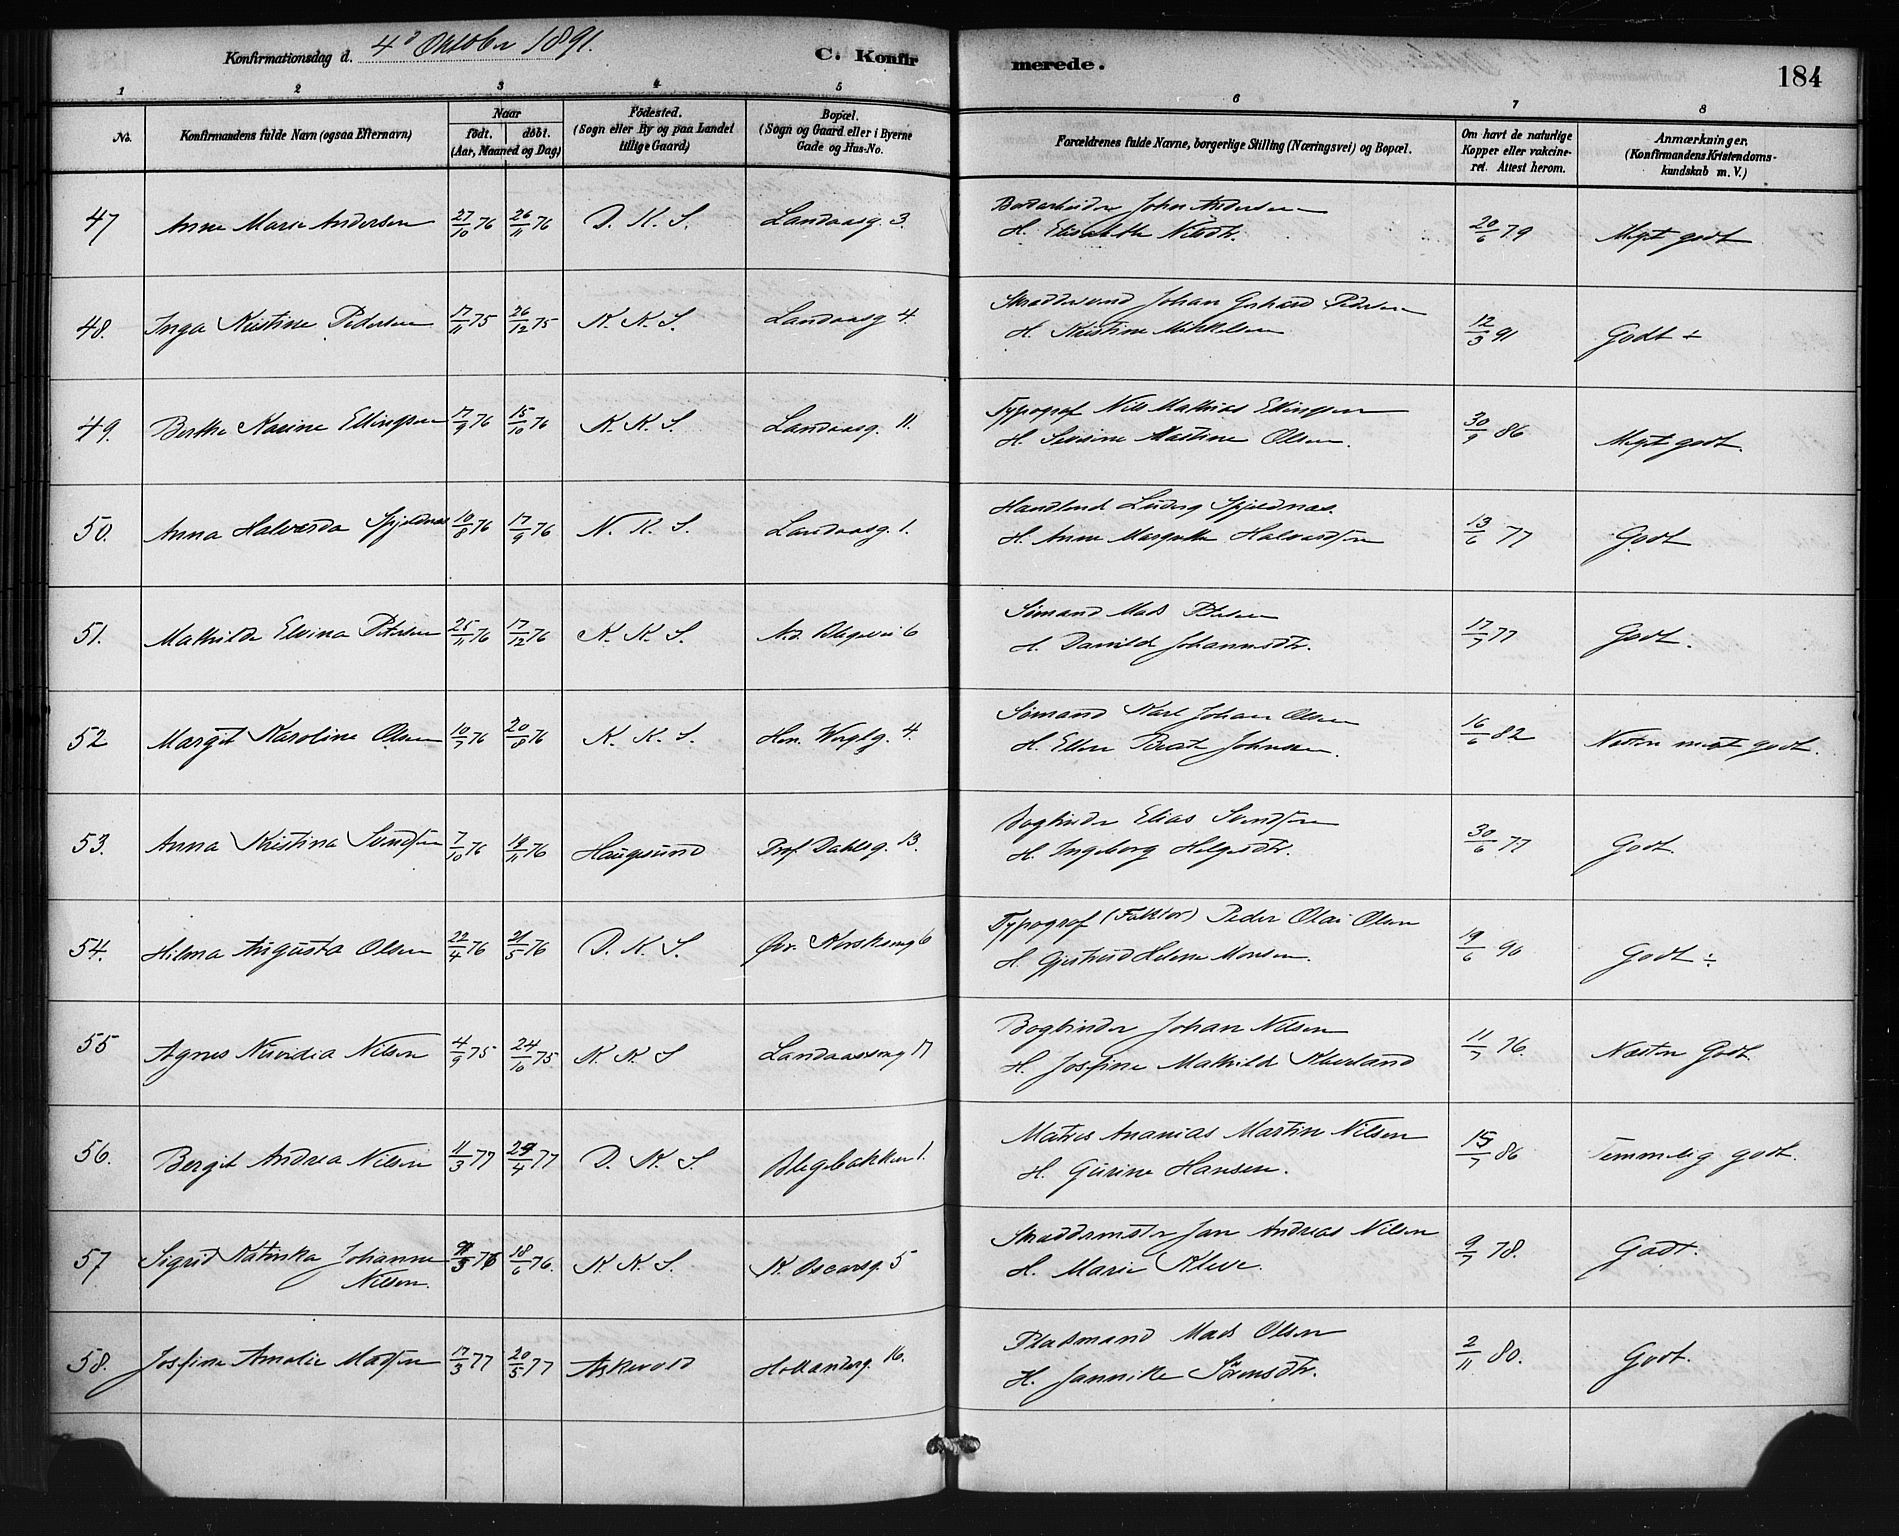 Konfirmationsdag d. 4d Oktober 1891. C. Konfirmerede. 184
1 2 3 4 5 6 7 8
No. | Konfirmandens fulde Navn (ogsaa Efternavn) | Naar født. døbt. (Aar, Maaned og Dag) | Fødested. (Sogn eller By og paa Landet tillige Gaard) | Bopæl. (Sogn og Gaard eller i Byerne Gade og Hus-No. | Forældrenes fulde Navne, borgerlige Stilling (Næringsvei) og Bopæl. | Om havt de naturlige Kopper eller vakcineret. Attest herom. | Anmærkninger. (Konfirmandens Kristendomskundskab m. V.)
47 Anne Marie Andersen 27/10 76 26/11 76 D. K. S. Landaasg. 3. John Andersen 20/6 79 Meget godt
H. Elisabeth Nilsdtr.
48. Inga Kristine Pedersen 17/11 75 26/12 75 K. K. S. Landaasg 4. Skræddersvend Johan Gerhard Pedersen 12/3 91 Godt ÷
H. Kristine Mikkelsen
49. Berthe Karine Ellingsen 17/9 76 15/10 76 K. K. S. Landaasg. 11. Typograf Nils Mathias Ellingsen 30/9 86 Meget godt.
H. Severine Martine Olsen.
50. Anna Halvarda Spjeldnæs 10/8 76 17/9 76 N. K. S. Landaasg. 1. Handlend Ludvig Spjeldnæs. 13/6 77 Godt
H. Anne Margrethe Halvardsen
51. Mathilde Elvina Petersen 25/11 76 17/12 76 K. K. S. Blegevei 6 Sømand Mads Petersen 17/7 77 Godt.
H. Danild Johannesdtr.
52 Margit Karoline Olsen 10/7 76 20/8 76 K. K. S. Hen. Wergl.g. 4. Sømand Karl Johan Olsen 16/6 82 Næsten meget godt.
H. Ellen Johnsen.
53. Anna Kristina Svendsen 7/10 76 19/11 76 Haugesund Prof. Dahlsg. 13. Bogbinder Elias Svendsen 30/6 77 Godt.
H. Ingeborg Helgesdtr.
54. Hilma Augusta Olsen 22/4 76 21/5 76 D. K. S. Øvr. Korskirkeg 6 Typograf (Faktor) Peder Olai Olsen 19/6 90 Godt ÷
H. Gjertrud Helene Monsen.
55 Agnes Nividia Nilsen 4/9 75 24/10 75. K. K. S Landaassmug 17 Bogbinder Johan Nilsen 11/7 76. Næsten Godt.
H. Josefine Mathilde Kleveland
56. Bergit Andrea Nilsen 11/3 77 29/4 77 D. K. S. Blegebakken 1. Matros Ananias Martin Nilsen 15/7 86 Temmelig godt.
H. Gurine Hansen.
57 Sigrid Katinka Johanne 5 76 18/6 76. K. K. S. K. Oscarsg. 5 Skræddermester Jan Andreas Nilsen 9/7 78. Godt.
Nilsen. H. Marie Kleve.
58. Josefine Amalie Madsen 17/3 77 20/5 77 Askevold Hollænderg. 16. Pladsmand Mads Olsen 2/11 80. Godt.
H. Jannike Sörensdtr.